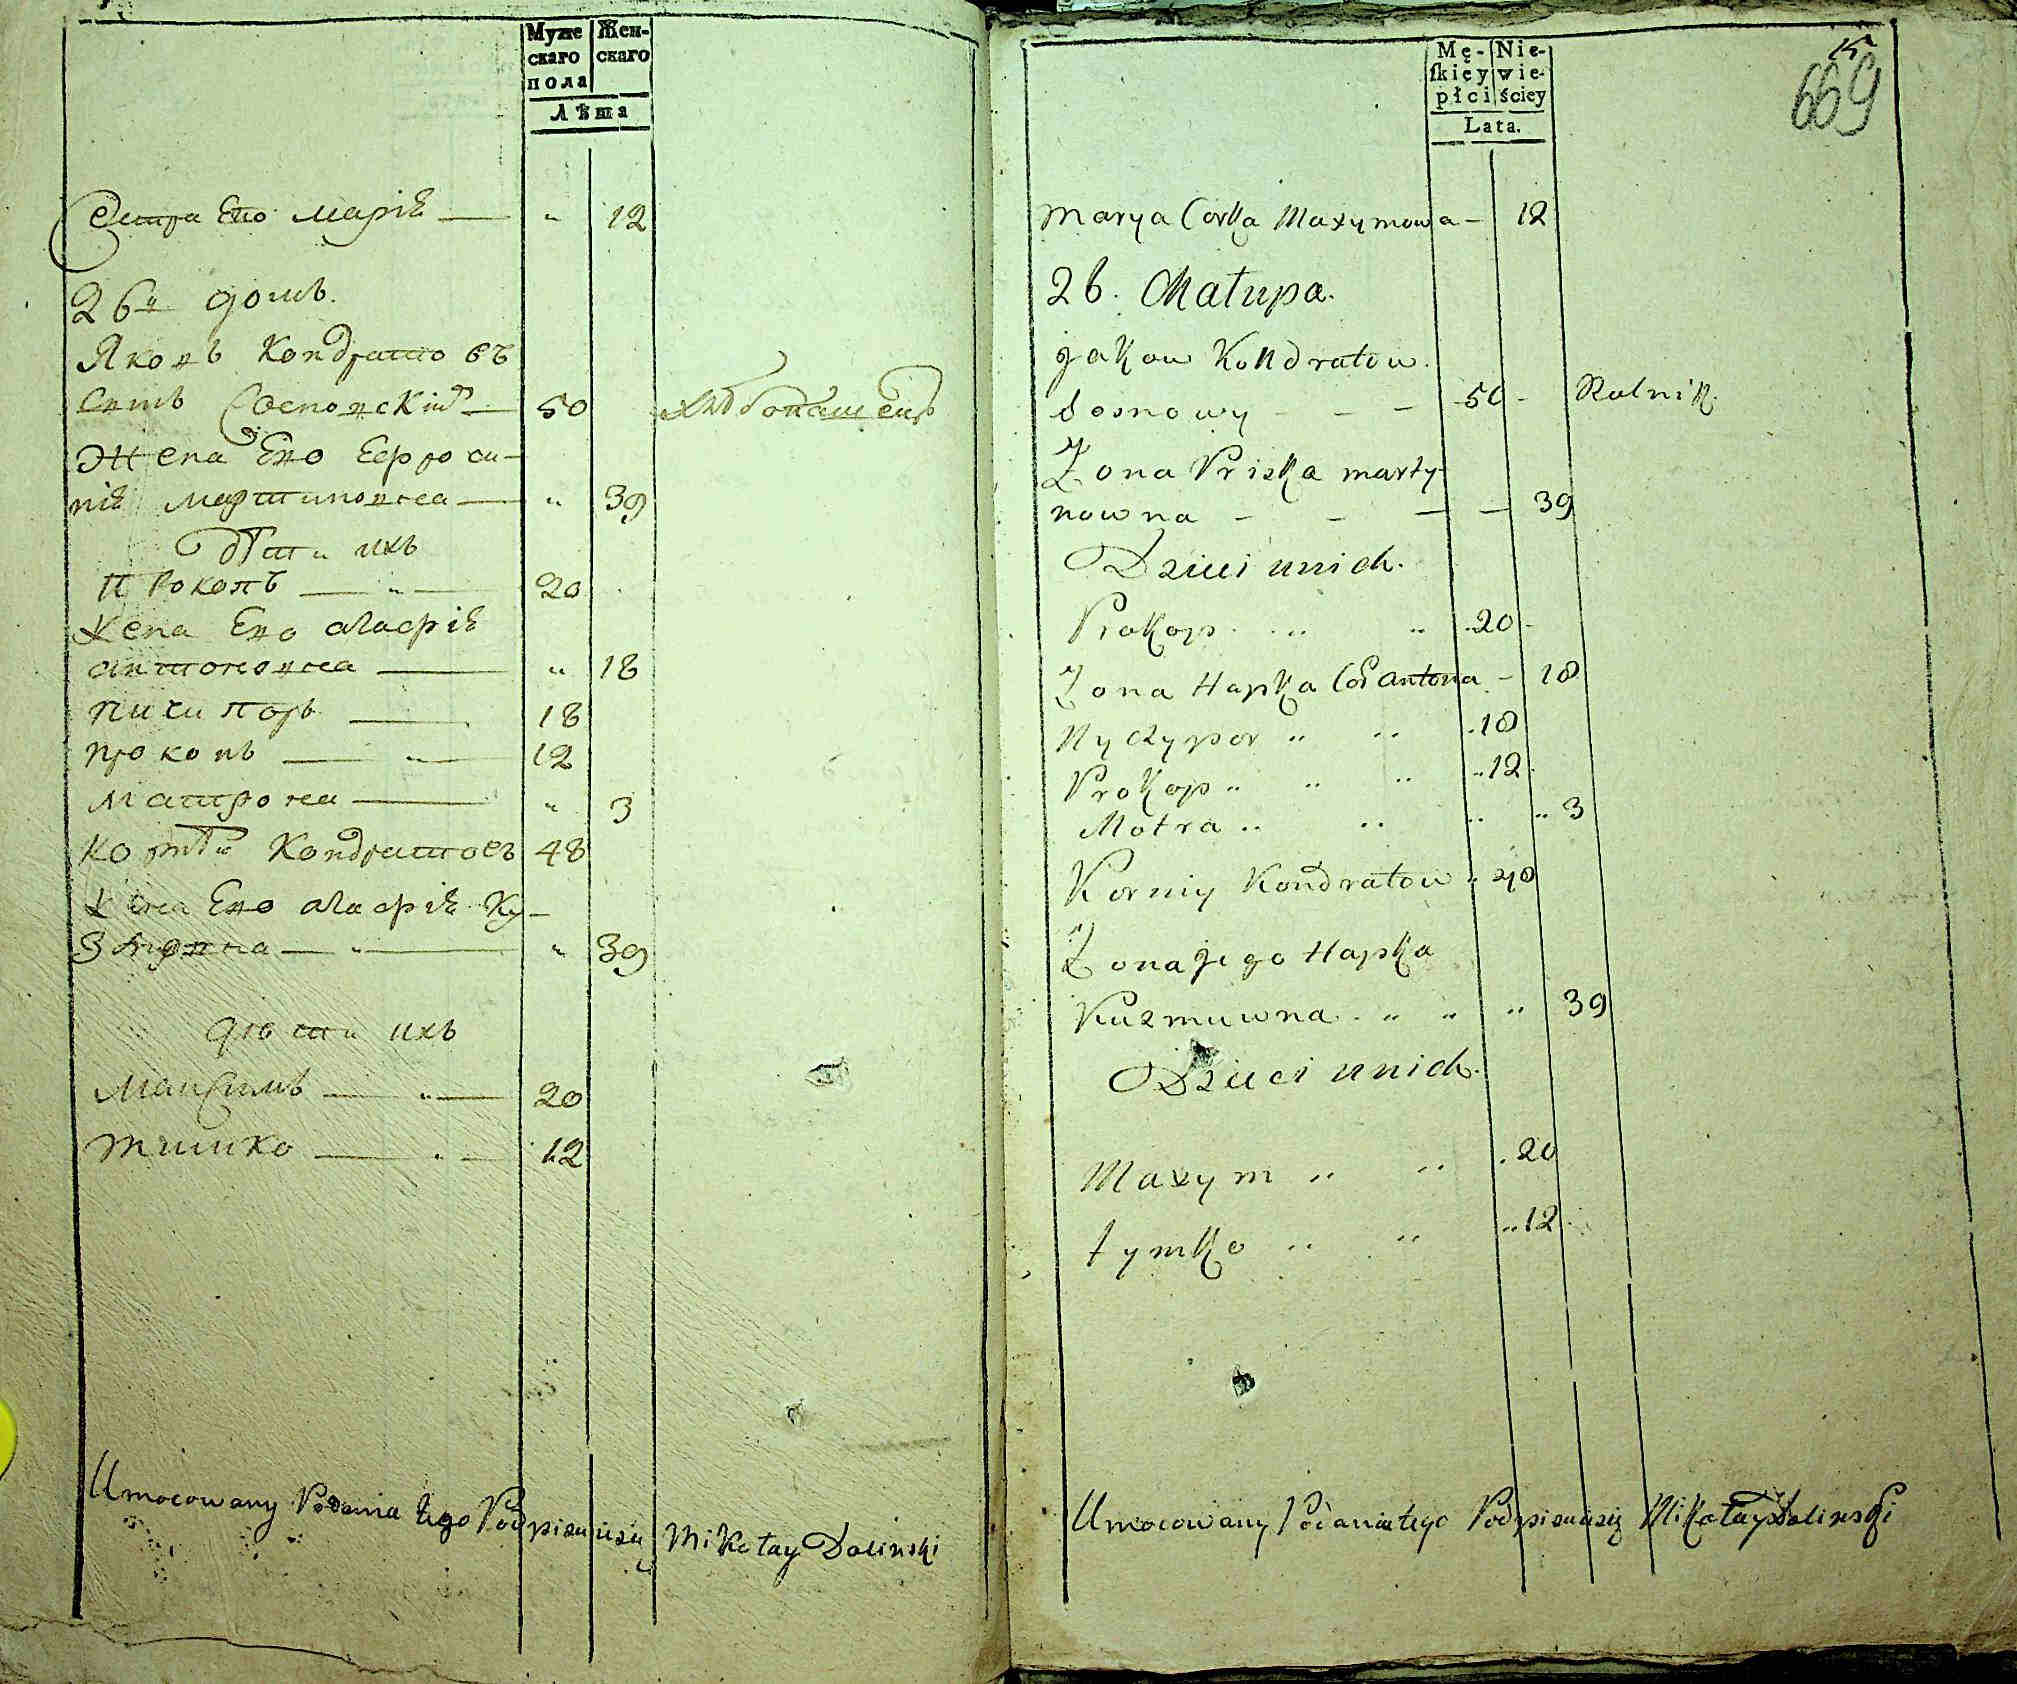 Муже
скаго
пола
Жен-
скаго
Лѣта
Сестра Его Марія — „ 12
26й домъ.
Яковъ Кондратовъ
Сынъ Сосновскій — 50 хлѣбопашецъ
Жена Его Ефроси-
нія Мартиновна — „ 39
Дѣти ихъ
Прокопъ — „ — 20
Жена Его Агафія
Антоновна — „ 18
Ничипоръ — 18
Прокопъ — „ — 12
Матрона — „ 3
Корнѣй Кондратовъ 48
Жена Его Агафія Ку-
змовна — „ — „ 39
дѣти ихъ
Максимъ — „ — 20
Тимко — „ — 12
Umocowany Podania tego Podpisuię się Mikołay Doliński
Mę-
skiey
płci
Nie-
wie-
ściey
Lata.
669
Marya Corka Maxymowa — 12
26. Chałupa.
Jakow Kondratow.
Sosnowy - - — 50 - Rolnik.
Żona Priska Marty-
nowna - - — — 39
Dzieci u nich.
Prokop „ „ 20 -
Żona Hapka Cor Antona - 18
Nyczypor „ „ 18
Prokop „ „ „ 12
Motra „ „ „ „ 3
Korniy Kondratow „ 48
Żona Jego Hapka
Kuzmuwna „ „ „ 39
Dzieci u nich.
Maxym „ „ 20
Tymko „ „ 12
Umocowany Podania tego Podpisuię się Mikołay Doliński